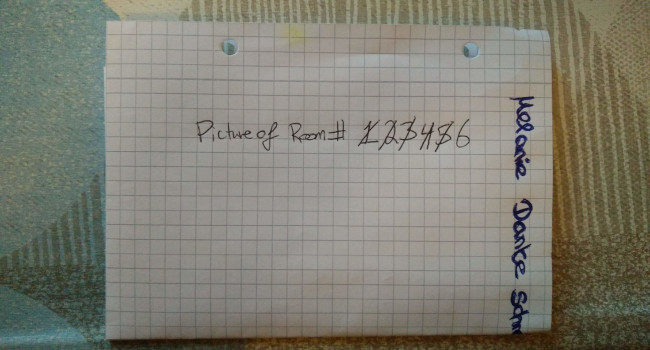 Picture of Room# 123456
Melanie Danke